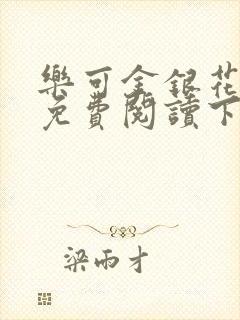 樂可金銀花
免費閱讀下
梁雨才